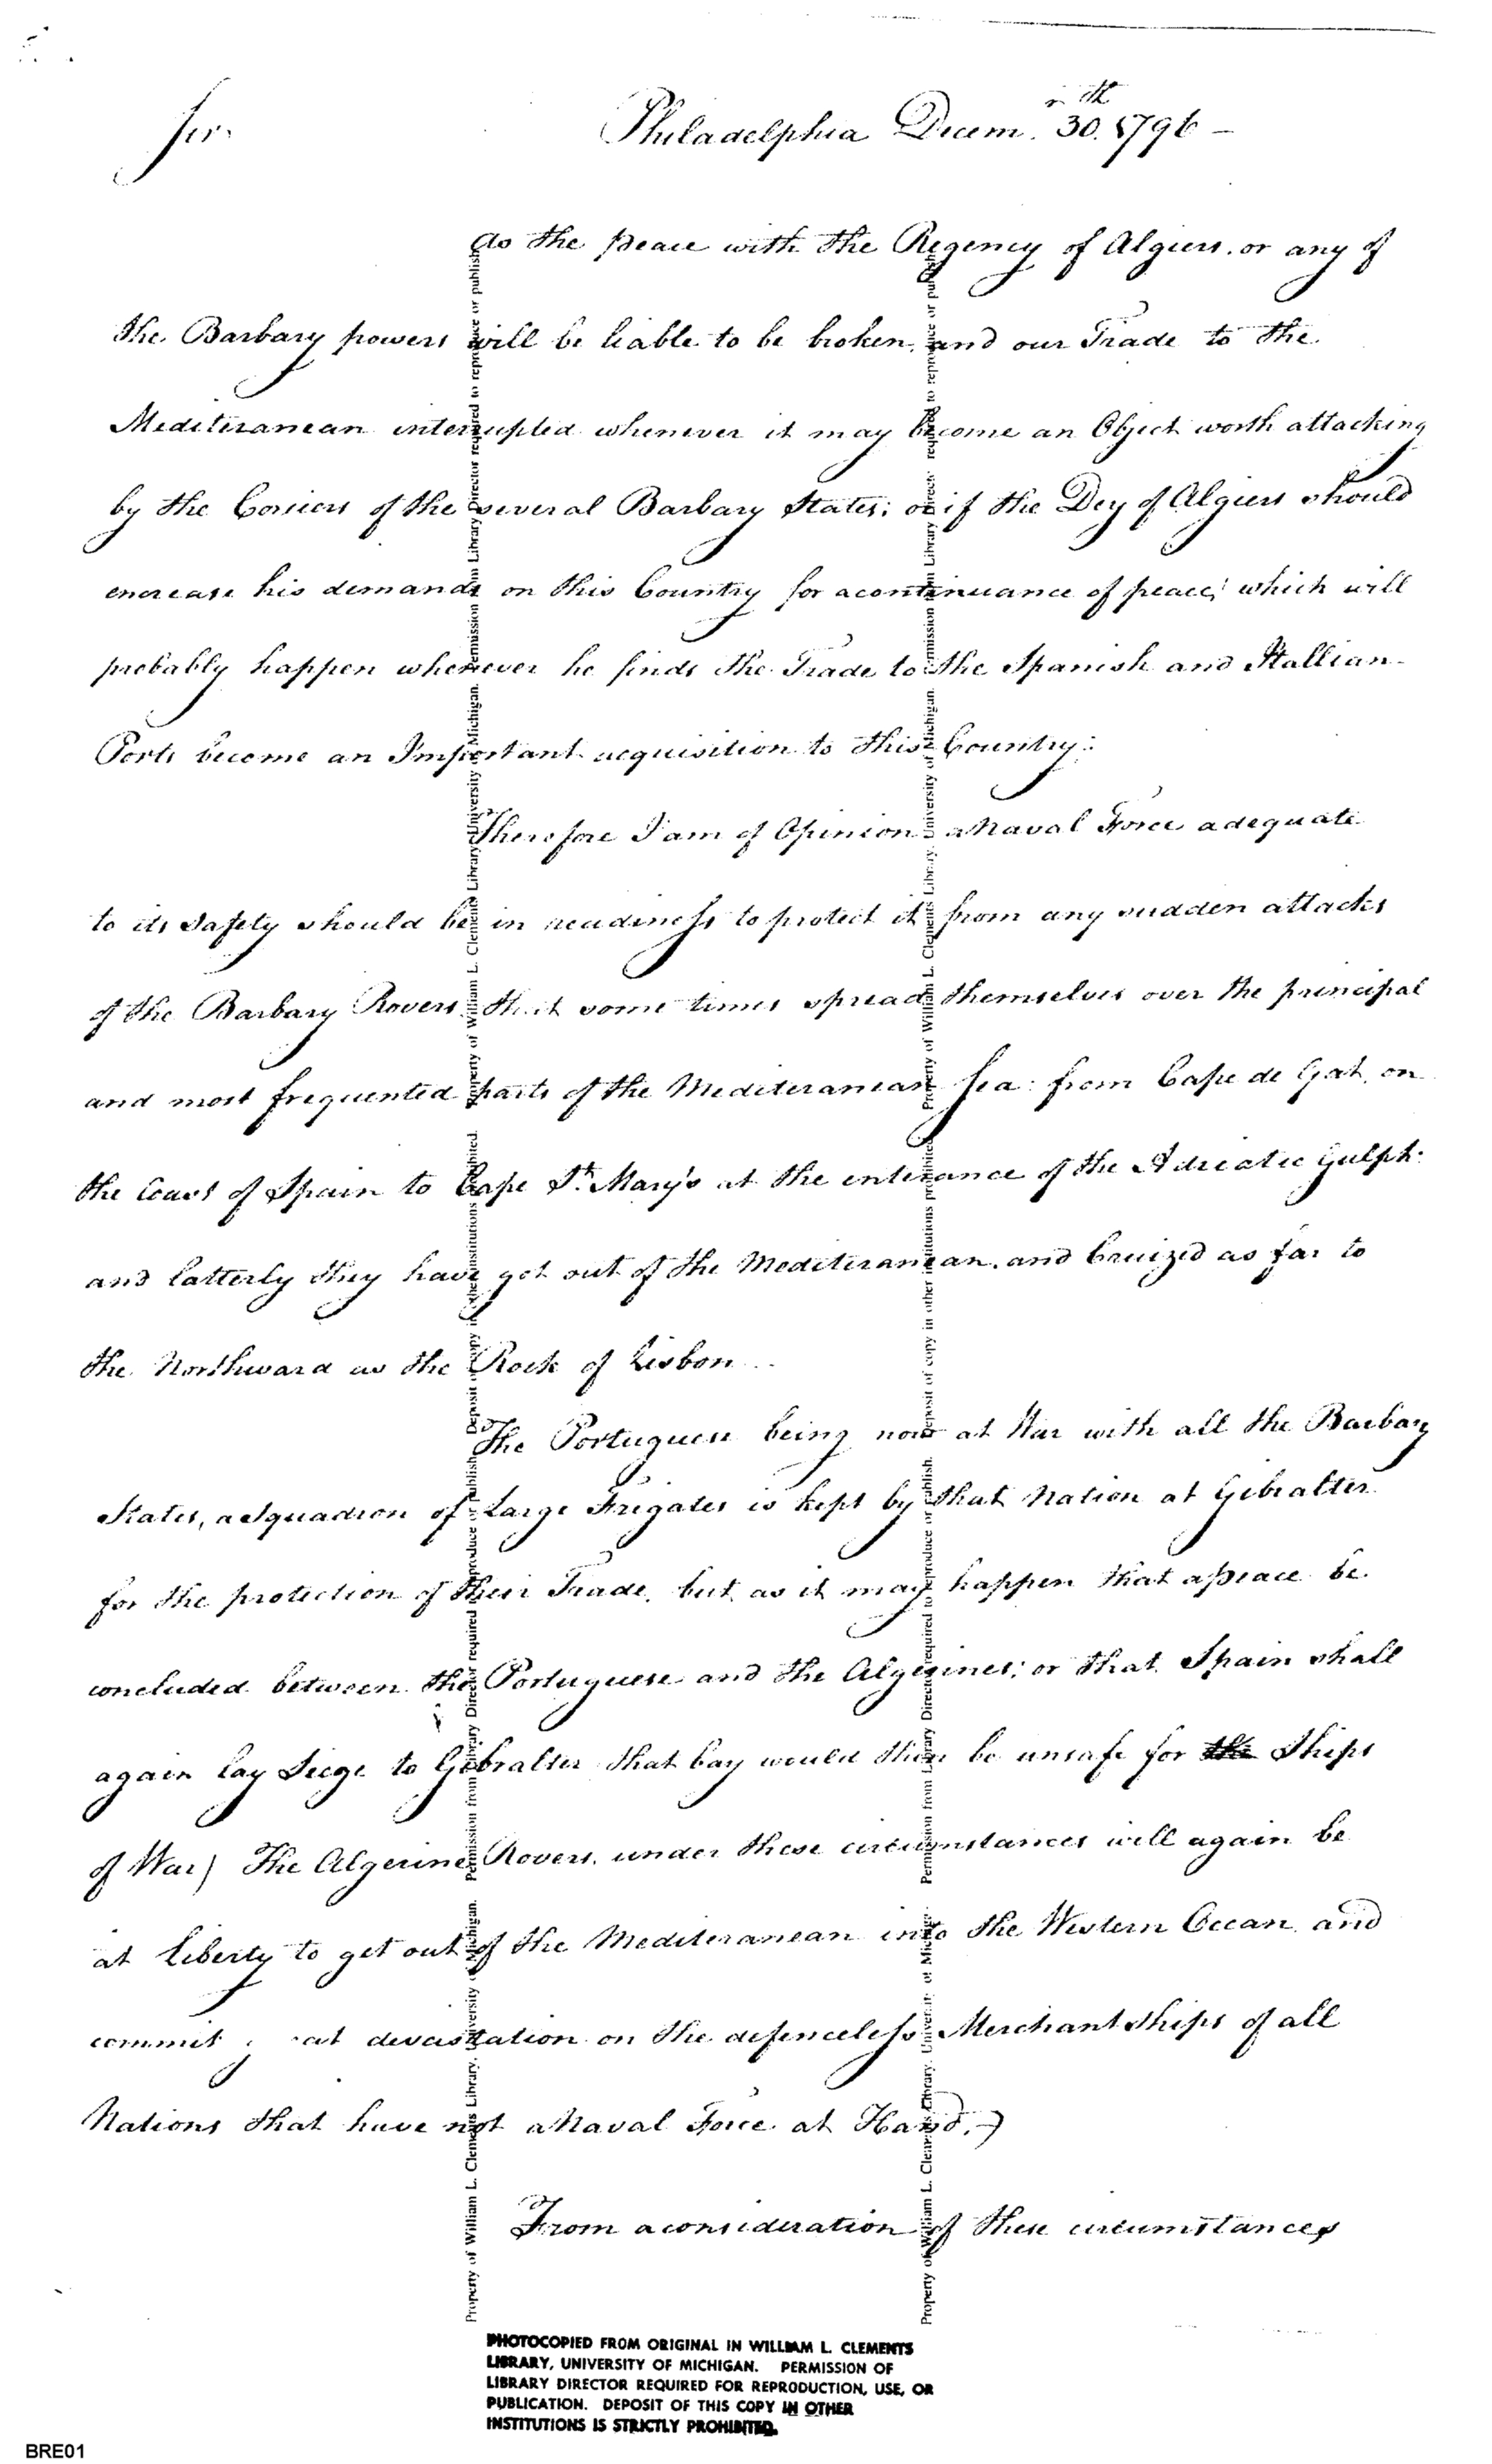 Sir. Philadelphia Decem.r 30.th 1796 –
As the peace with the Regency of Algiers. or any of
the Barbary powers will be liable to be broken, and our Trade to the
Mediteranean interrupted whenever it may become an Object worth attacking
by the Corsiers of the several Barbary States; or if the Dey of Algiers should
encrease his demands on this Country for acontinuance of peace; which will
probably happen whenever he finds the Trade to the Spanish and Itallian
Ports become an Important acquisition to this Country:
Therefore I am of Opinion a Naval Force adequate
to its Safety should be in readiness to protect it from any sudden attacks
of the Barbary Rovers that some times spread themselves over the principal
and most frequented parts of the Mediteranean Sea: from Cape de Gat, on
the Coast of Spain to Cape St. Mary's at the enterance of the Adriatic Gulph:
and latterly they have got out of the Mediteranean. and Cruized as far to
the Northward as the Rock of Lisbon..
The Portuguese being now at War with all the Barbary
States, a Squadron of Large Frigates is kept by that Nation at Gibralter
for the protection of their Trade, but as it may happen that apeace be
concluded between the Portuguese and the Algerines; or that Spain shall
again lay Siege to Gibralter that bay would then be unsafe for the Ships
of War) The Algerine Rovers. under those circumstances will again be
at Liberty to get out of the Mediteranean into the Western Ocean and
commit devastation on the defenceless Merchant Ships of all
Nations that have not a Naval Force at Hand.
From aconsideration of these circumstances
Property of William L. Clements Library, University of Michigan. Permission from Library Director required to reproduce or publish. Deposit of copy in other institutions prohibited.
Property of William L. Clements Library, University of Michigan. Permission from Library Director required to reproduce or publish.
Property of William L. Clements Library, University of Michigan. Permission from Library Director required to reproduce or publish. Deposit of copy in other institutions prohibited.
Property of William L. Clements Library, University of Michigan. Permission from Library Director required to reproduce or publish.
PHOTOCOPIED FROM ORIGINAL IN WILLIAM L. CLEMENTS
LIBRARY, UNIVERSITY OF MICHIGAN. PERMISSION OF
LIBRARY DIRECTOR REQUIRED FOR REPRODUCTION, USE, OR
PUBLICATION. DEPOSIT OF THIS COPY IN OTHER
INSTITUTIONS IS STRICTLY PROHIBITED.
BRE01